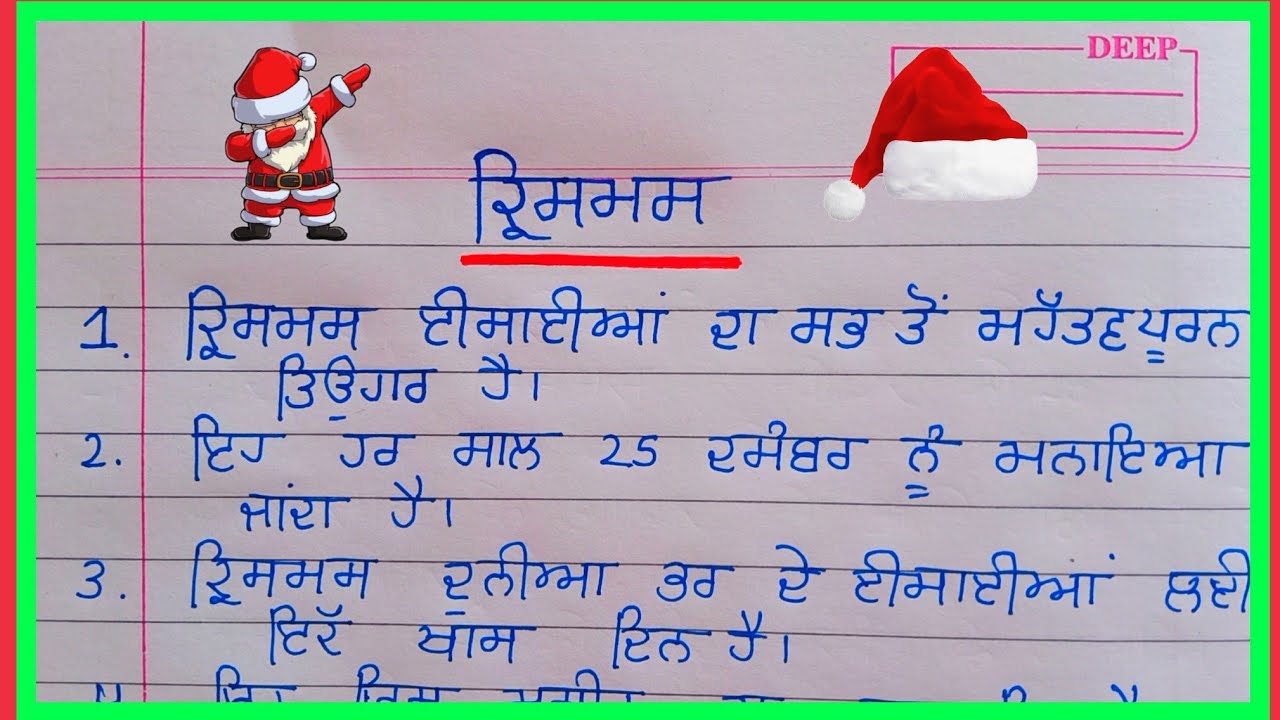 DEEP
ਕ੍ਰਿਸਮਸ
1. ਕ੍ਰਿਸਮਸ ਈਸਾਈਆਂ ਦਾ ਸਭ ਤੋਂ ਮਹੱਤਵਪੂਰਨ
ਤਿਉਹਾਰ ਹੈ।
2. ਇਹ ਹਰ ਸਾਲ 25 ਦਸੰਬਰ ਨੂੰ ਮਨਾਇਆ
ਜਾਂਦਾ ਹੈ।
3. ਕ੍ਰਿਸਮਸ ਦੁਨੀਆ ਭਰ ਦੇ ਈਸਾਈਆਂ ਲਈ
ਇੱਕ ਖਾਸ ਦਿਨ ਹੈ।